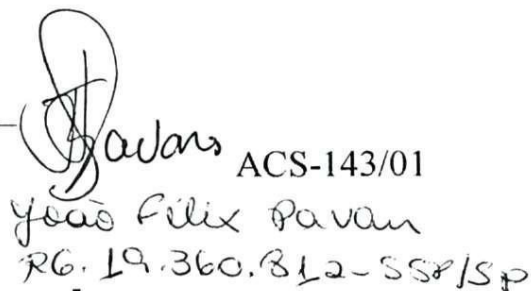 Pavans ACS-143/01
João Félix Pavan
RG. 19.360.812-SSP/SP